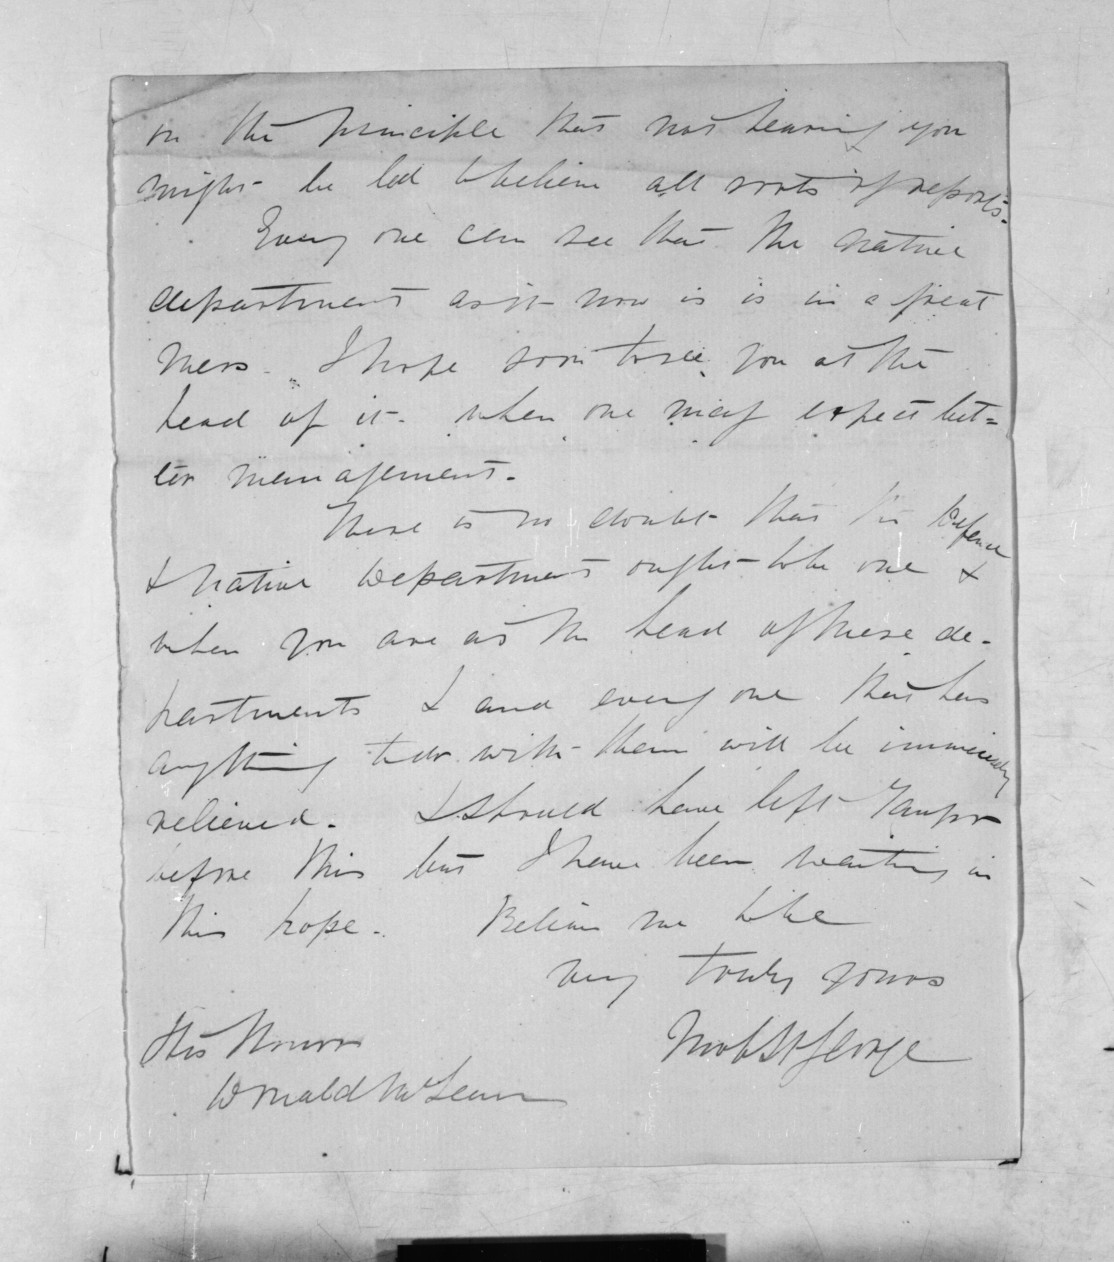 on the principle that not hearing you
might be led to believe all sorts of reports.
Every one can see that the Native
department as it now is is in a great
mess. I hope soon to see you at the
head of it. when one may expect bet=
ter management.
There is no doubt that the Defence
& Native Department ought to be one &
when you are at the head of these de-
partments I and every one that has
anything to do with them will be immensely
relieved. I should have left Taupo
before this but I have been waiting in
this hope. Believe me to be
very truly yours
St George
His Honor
Donald McLean